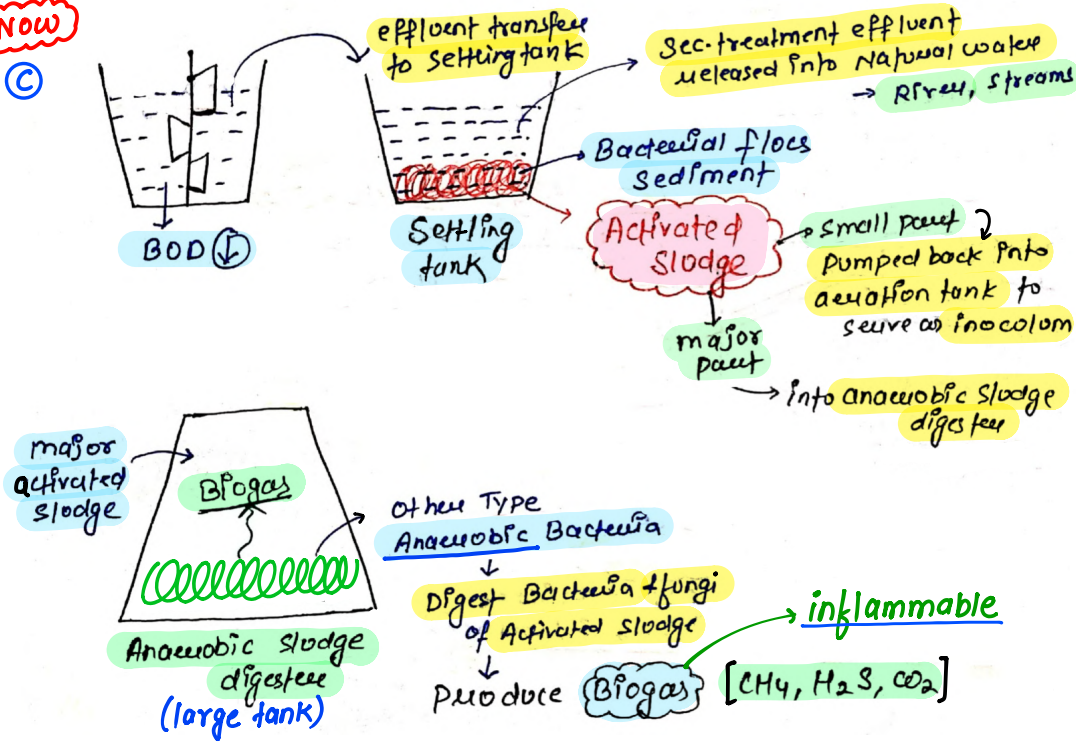 NOW
C
effluent transfer
to Settling tank
BOD ↓
Settling
tank
Sec.treatment effluent
released into Natural water
→ River, streams
Bacterial flocs
Sediment
Activated
Sludge
small part
pumped back into
aeration tank to
serve as inocolum
major
part
→ into anaerobic Sludge
digester
major
activated
sludge
Biogas
Anaerobic sludge
digester
(large tank)
Other Type
Anaerobic Bacteria
↓
Digest Bacteria & fungi
of Activated sludge
↓
Produce Biogas
inflammable
[CH4, H2S, CO2]